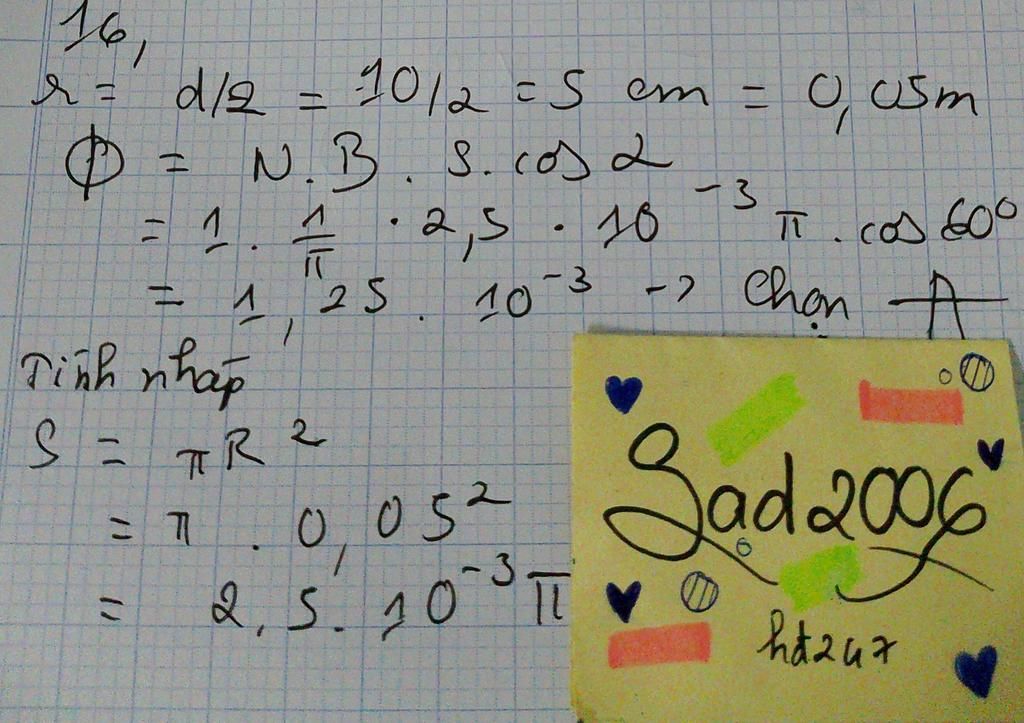 16,
r = d/2 = 10/2 = 5 cm = 0,05m
Φ = N.B.S.cos α
= 1 . 1/π . 2,5 . 10⁻³ π . cos 60⁰
= 1,25 . 10⁻³ -> Chọn A
Tính nháp
S = πR²
= π . 0,05²
= 2,5.10⁻³ π
Sad2006
hd247